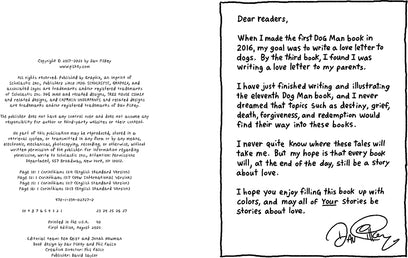 Copyright © 2017-2023 by Dav Pilkey
www.pilkey.com
All rights reserved. Published by Graphix, an imprint of
Scholastic Inc., Publishers since 1920. SCHOLASTIC, GRAPHIX, and
associated logos are trademarks and/or registered trademarks
of Scholastic Inc. DOG MAN and related designs, TREE HOUSE COMIX
and related designs, and CAPTAIN UNDERPANTS and related designs
are trademarks and/or registered trademarks of Dav Pilkey.
The publisher does not have any control over and does not assume any
responsibility for author or third-party websites or their content.
No part of this publication may be reproduced, stored in a
retrieval system, or transmitted in any form or by any means,
electronic, mechanical, photocopying, recording, or otherwise, without
written permission of the publisher. For information regarding
permission, write to Scholastic Inc., Attention: Permissions
Department, 557 Broadway, New York, NY 10012.
Printed in the U.S.A.
First edition, August 2023
Book design by Dav Pilkey and Phil Falco
Creative Director: Phil Falco
Publisher: David Saylor
Dear readers,
When I made the first Dog Man book in
2016, my goal was to write a love letter to
dogs. By the third book, I found I was
writing a love letter to my parents.
I have just finished writing and illustrating
the eleventh Dog Man book, and I never
dreamed that topics such as destiny, grief,
death, forgiveness, and redemption would
find their way into these books.
I never quite know where these tales will
take me. But my hope is that every book
will, at the end of the day, still be a story
about love.
I hope you enjoy filling this book up with
colors, and may all of Your stories be
stories about love.
Dav Pilkey